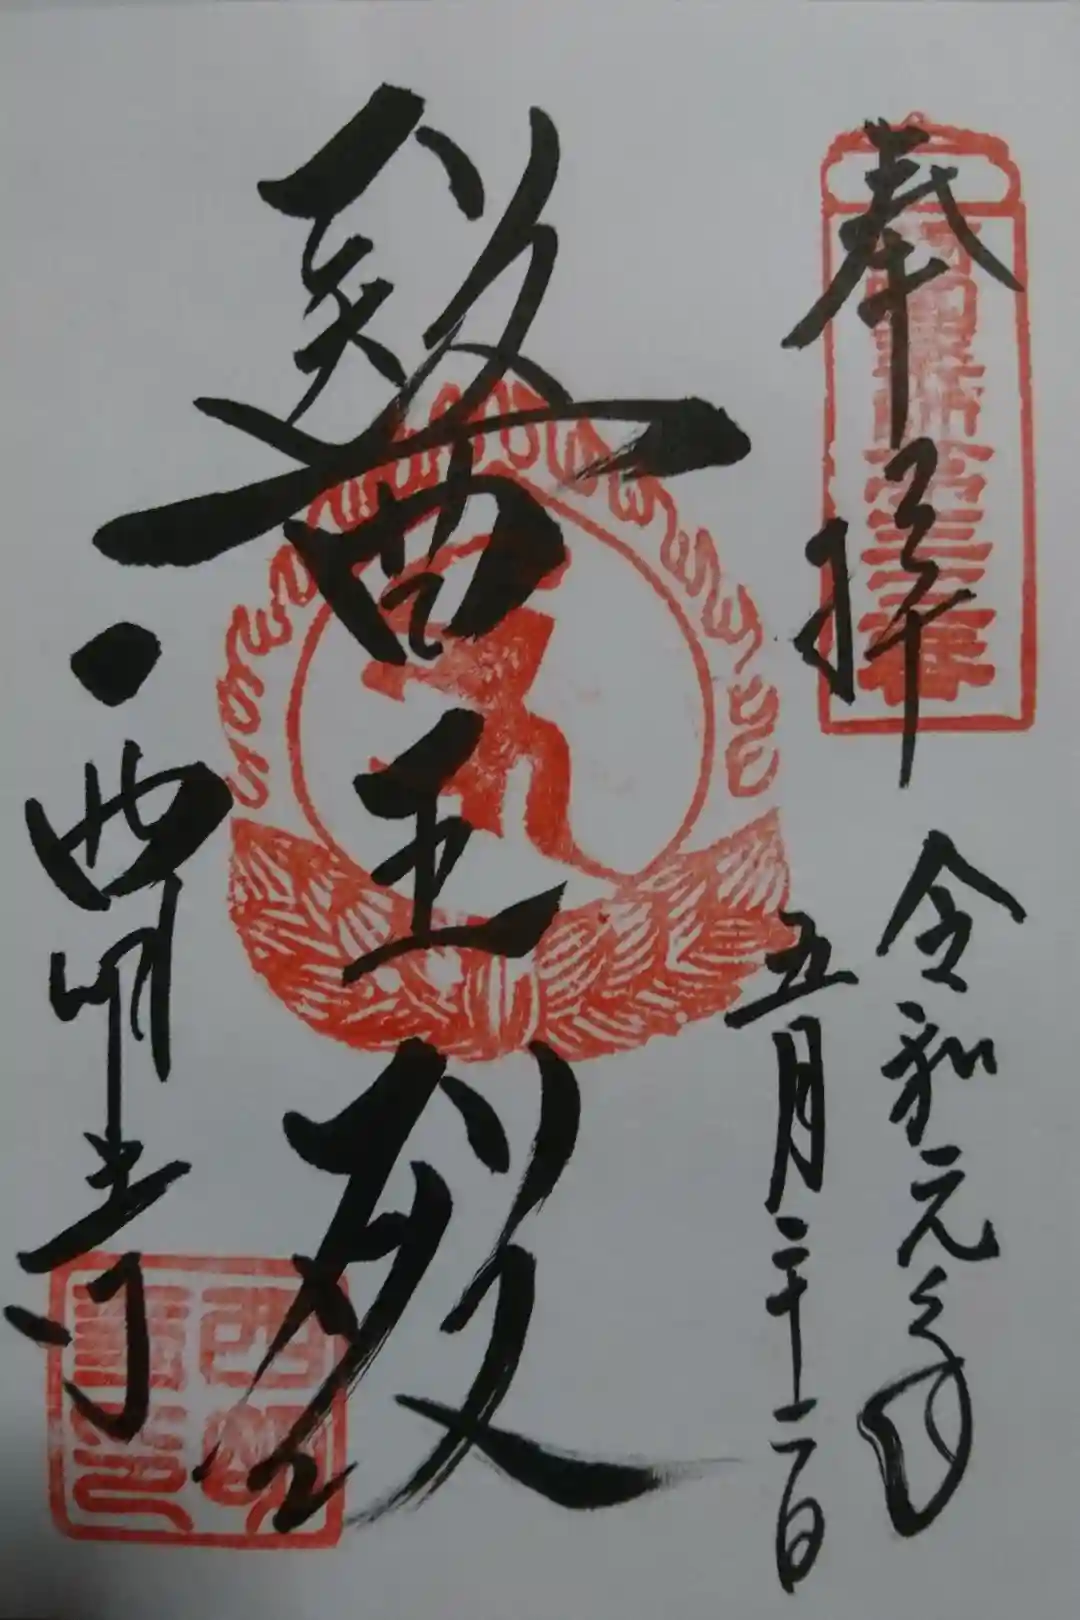 奉拝
令和元年
五月二十一日
醫王殿
西明寺